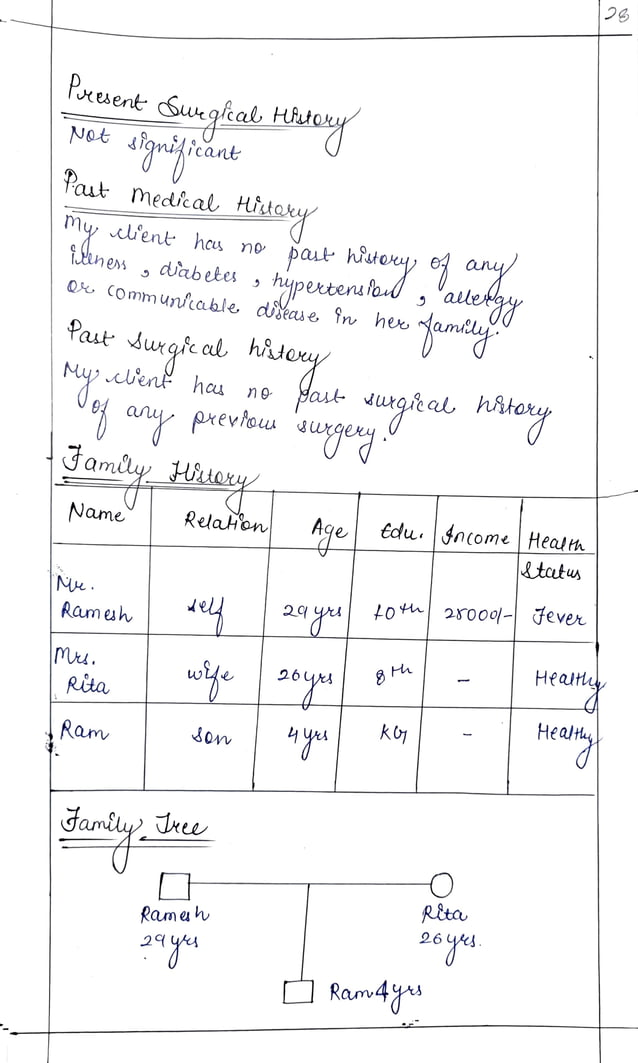 28
Present Surgical History
Not significant
Past Medical History
My client has no past history of any
illness, diabetes, hypertension, allergy
or communicable disease in her family.
Past surgical history
My client has no past surgical history
of any previous surgery.
Family History
Name Relation Age Edu. Income Health
Status
Mr.
Ramesh self 29 yrs 10th 25000/- Fever
Mrs.
Rita wife 26 yrs 8th - Healthy
Ram son 4 yrs KG - Healthy
Family Tree
Ramesh Rita
29 yrs 26 yrs.
Ram 4 yrs